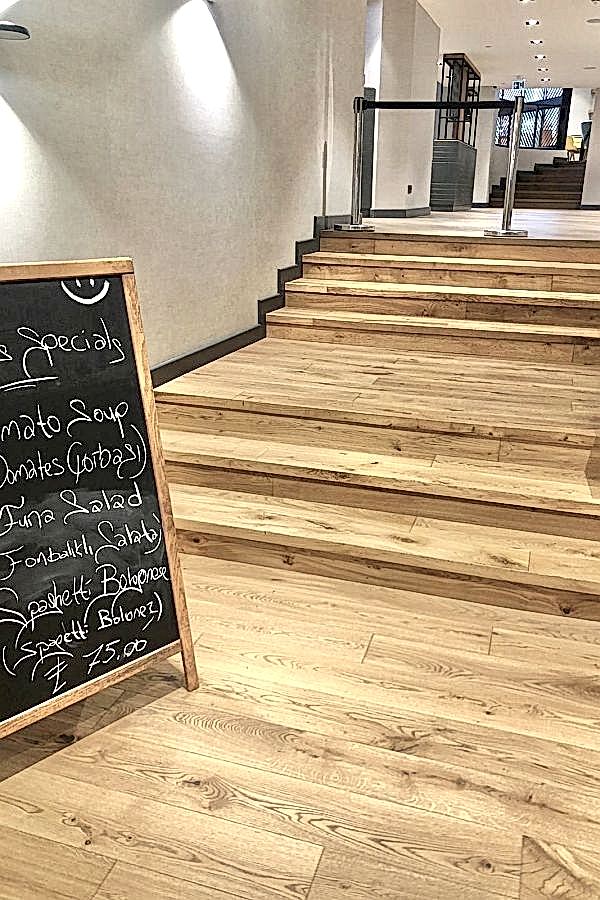 s Specials
mato Soup
Domates Çorbası)
Tuna Salad
Tonbalıklı Salata)
Spaghetti Bolognese
(Spagetti Bolonez)
₺ 75.00